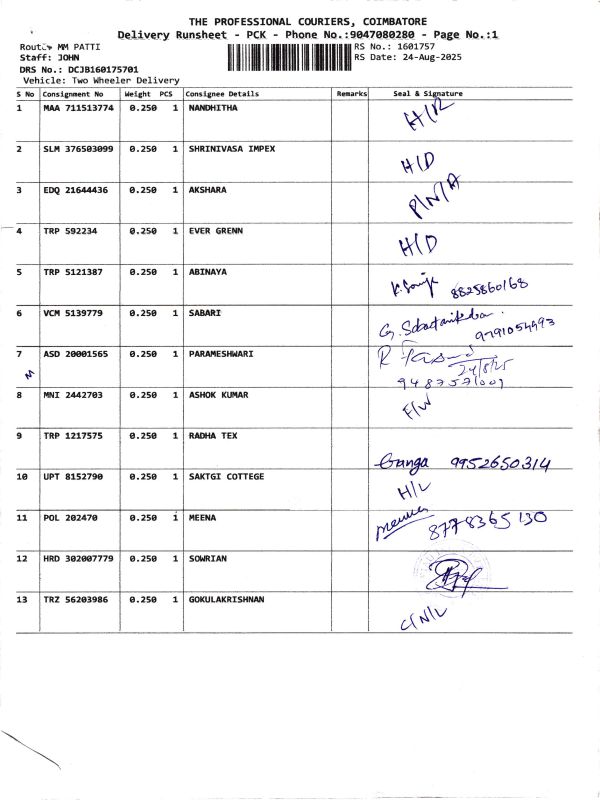 THE PROFESSIONAL COURIERS, COIMBATORE
Delivery Runsheet - PCK - Phone No.:9047080280 - Page No.:1
Route: MM PATTI RS No.: 1601757
Staff: JOHN RS Date: 24-Aug-2025
DRS No.: DCJB160175701
Vehicle: Two Wheeler Delivery
S No Consignment No Weight PCS Consignee Details Remarks Seal & Signature
1 MAA 711513774 0.250 1 NANDHITHA H/R
2 SLM 376503099 0.250 1 SHRINIVASA IMPEX H/D
3 EDQ 21644436 0.250 1 AKSHARA P/N/A
4 TRP 592234 0.250 1 EVER GRENN H/D
5 TRP 5121387 0.250 1 ABINAYA 8825860168
6 VCM 5139779 0.250 1 SABARI 9791054493
7 ASD 20001565 0.250 1 PARAMESHWARI R
M 24/8/25
9487571001
8 MNI 2442703 0.250 1 ASHOK KUMAR F/W
9 TRP 1217575 0.250 1 RADHA TEX
Ganga 9952650314
10 UPT 8152790 0.250 1 SAKTGI COTTEGE H/L
11 POL 202470 0.250 1 MEENA Meena 8778365130
12 HRD 302007779 0.250 1 SOWRIAN
13 TRZ 56203986 0.250 1 GOKULAKRISHNAN C/N/L